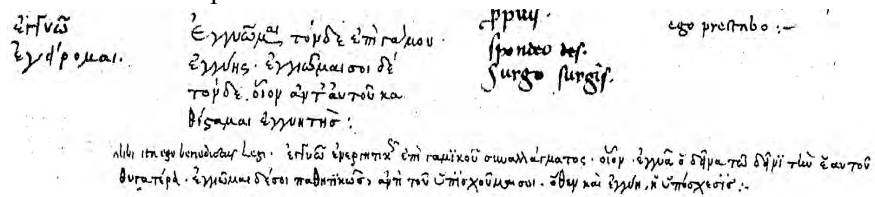 ἐγγυῶ
ἐγείρομαι.
Ἐγγυῶμαι τόνδε ἐπὶ γάμου.
ἐγγύης. ἐγγυῶμαι σοι δέ
τόνδε. οἷον ἀντ' αὐτοῦ κα
θίσταμαι ἐγγυητής:
spondeo des.
Surgo surgis.
ego prestabo :~
Alibi ita ego legi. ἐγγυῶ ἐνεργητικῶς ἐπὶ γαμικοῦ συναλλάγματος. οἷον. ἐγγυᾶ ὁ δῆνα τῶ δῆνι τὴν ἑαυτοῦ
θυγατέρα. ἐγγυῶμαι δέ σοι παθητικῶς, ἀντὶ τοῦ ὑπισχνοῦμαι σοι. ὅθεν καὶ ἐγγύη, ἡ ὑπόσχεσις :~